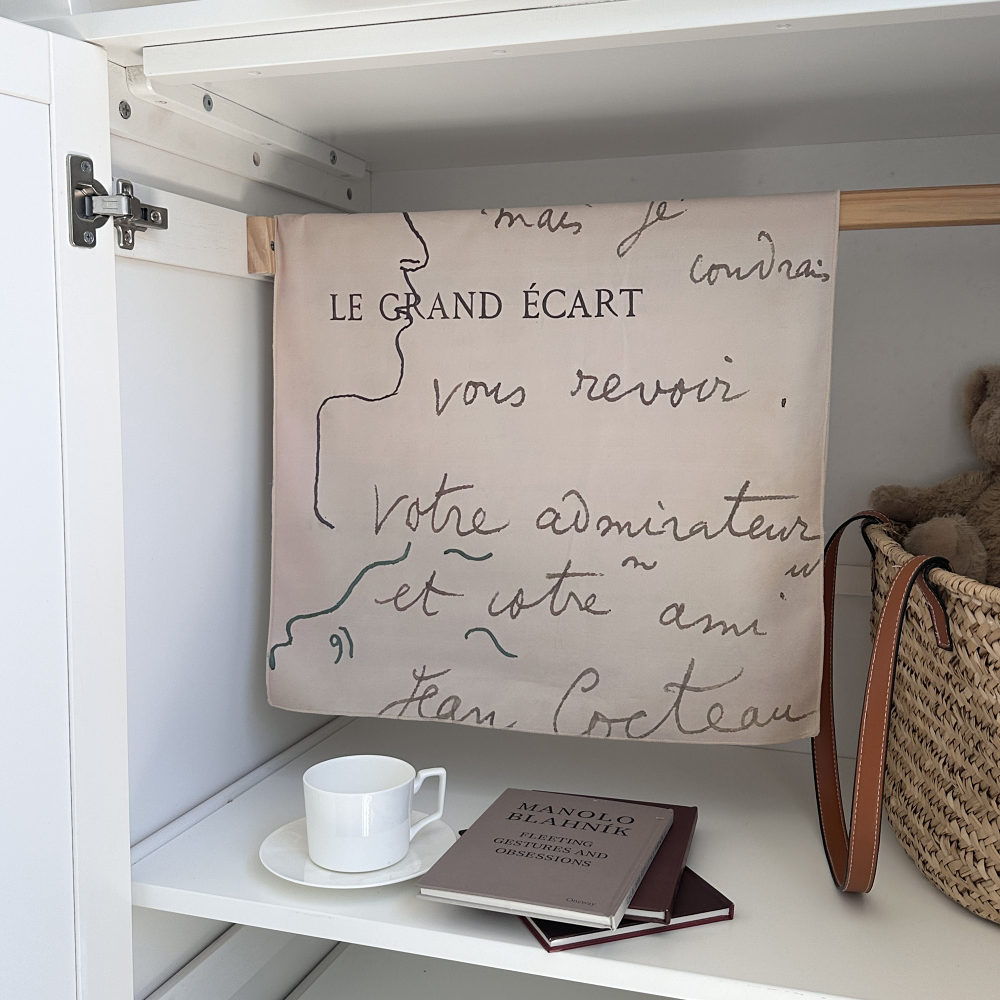 mais je
coudrais
LE GRAND ÉCART
vous revoir.
Votre admirateur
et votre ami
Jean Cocteau
MANOLO
BLAHNÍK
FLEETING
GESTURES AND
OBSESSIONS